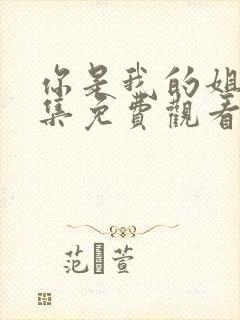 你是我的姐
集免費觀看
范 萱